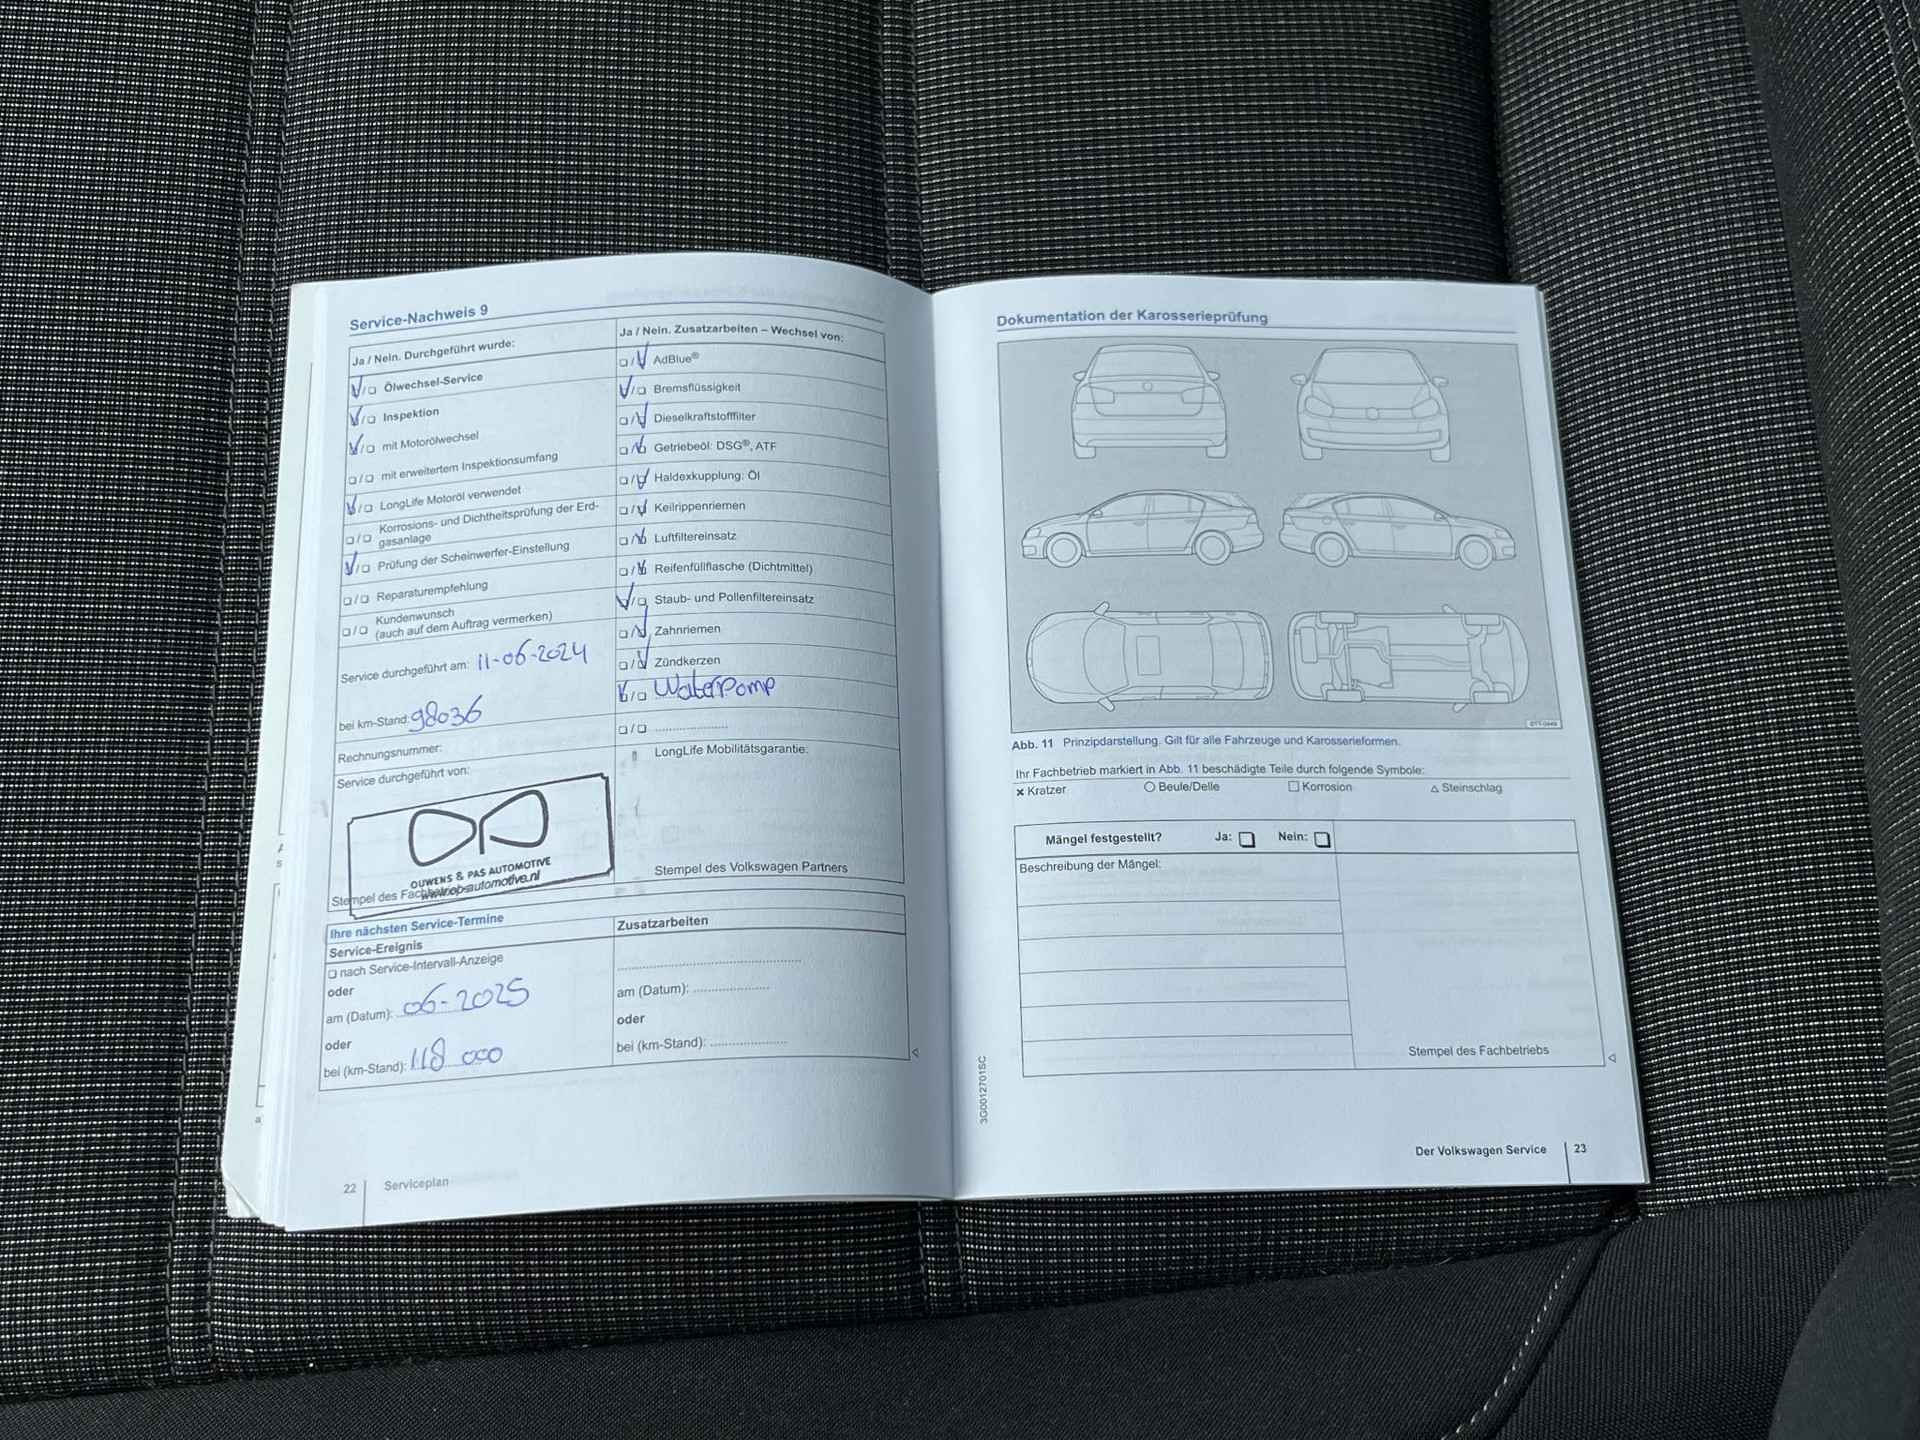 Service-Nachweis 9
Ja / Nein. Durchgeführt wurde:
☑/☐ Ölwechsel-Service
☑/☐ Inspektion
☑/☐ mit Motorölwechsel
☐/☐ mit erweitertem Inspektionsumfang
☑/☐ LongLife Motoröl verwendet
☐/☐ Korrosions- und Dichtheitsprüfung der Erd-
gasanlage
☑/☐ Prüfung der Scheinwerfer-Einstellung
☐/☐ Reparaturempfehlung
☐/☐ Kundenwunsch
(auch auf dem Auftrag vermerken)
Service durchgeführt am: 11-06-2024
bei km-Stand: 98036
Rechnungsnummer:
Service durchgeführt von:
OUWENS & PAS AUTOMOTIVE
www.op-automotive.nl
Stempel des
Ja / Nein. Zusatzarbeiten – Wechsel von:
☐/☑ AdBlue®
☑/☐ Bremsflüssigkeit
☐/☑ Dieselkraftstofffilter
☐/☑ Getriebeöl: DSG®, ATF
☐/☑ Haldexkupplung: Öl
☐/☑ Keilrippenriemen
☐/☑ Luftfiltereinsatz
☐/☑ Reifenfüllflasche (Dichtmittel)
☑/☐ Staub- und Pollenfiltereinsatz
☐/☑ Zahnriemen
☐/☑ Zündkerzen
☑/☐ Waterpomp
☐/☐ ....................
LongLife Mobilitätsgarantie:
Stempel des Volkswagen Partners
Ihre nächsten Service-Termine
Service-Ereignis
☐ nach Service-Intervall-Anzeige
oder
am (Datum): 06-2025
oder
bei (km-Stand): 118 000
Zusatzarbeiten
am (Datum): ....................
oder
bei (km-Stand): ....................
22 Serviceplan
Dokumentation der Karosserieprüfung
Abb. 11 Prinzipdarstellung. Gilt für alle Fahrzeuge und Karosserieformen.
Ihr Fachbetrieb markiert in Abb. 11 beschädigte Teile durch folgende Symbole:
× Kratzer ○ Beule/Delle □ Korrosion △ Steinschlag
Mängel festgestellt? Ja: ☐ Nein: ☐
Beschreibung der Mängel:
Stempel des Fachbetriebs
3G0012701SC
Der Volkswagen Service 23